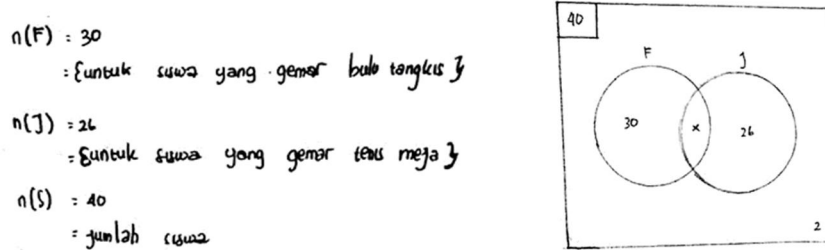 n(F) : 30
: {untuk siswa yang gemar bulu tangkis}
n(J) : 26
= {untuk siswa yang gemar tenis meja}
n(S) : 40
= jumlah siswa
40
F J
30 x 26
2